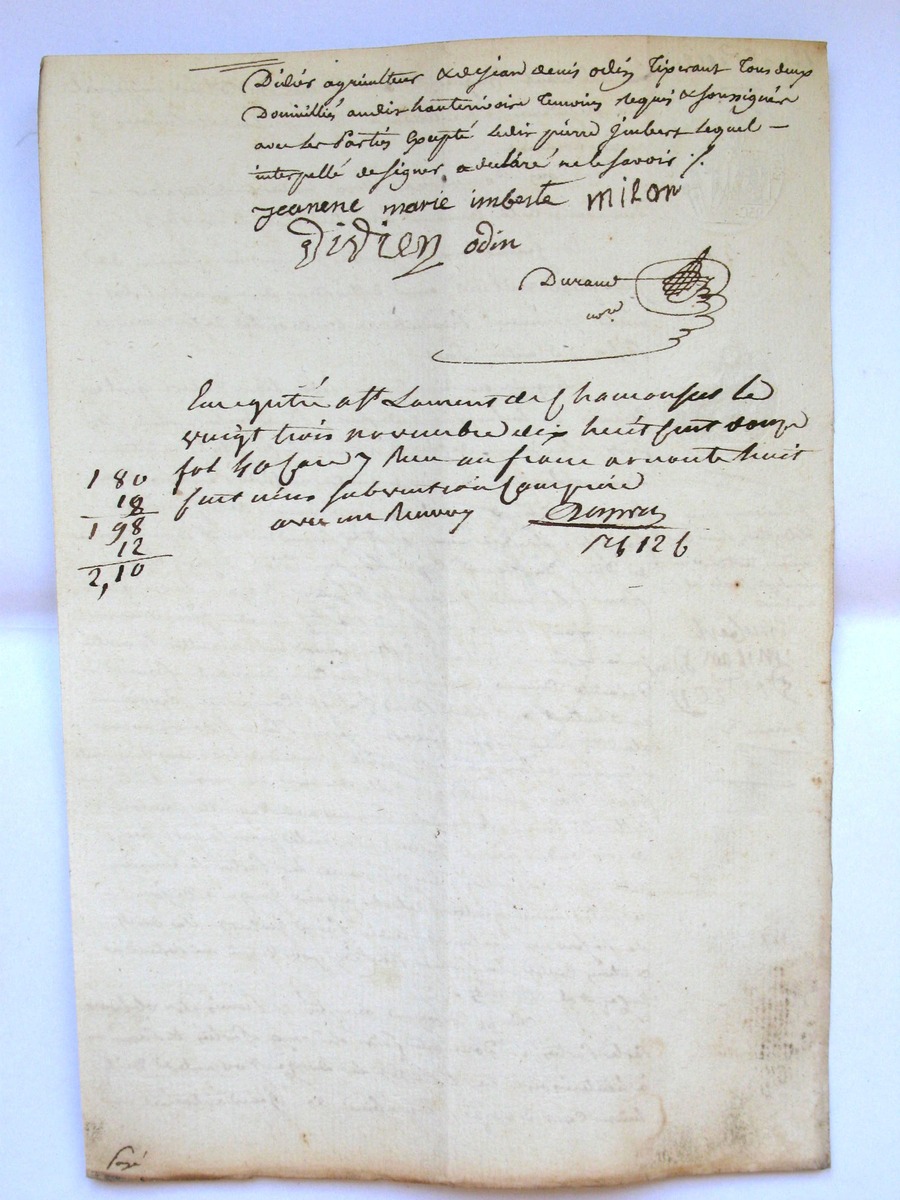 Didier agriculteur & de Jean denis odin Tixerant Tous deux
Domiciliés audit hauterivoire Temoins requis & soussignés
avec les Parties Excepté Ledit pierre Jmbert Lequel —
interpellé de signer a declaré ne le savoir ./.
jeanene marie imberte milon
Didier odin
Durand
nore
Enregistré a St Laurent de Chamousset le
vingt trois novembre dix huit cent douze
fol 40 Case 7 Reçu un franc nonante huit
centimes subvention Comprise
avec un Renvoy
180
18
198
12
2,10